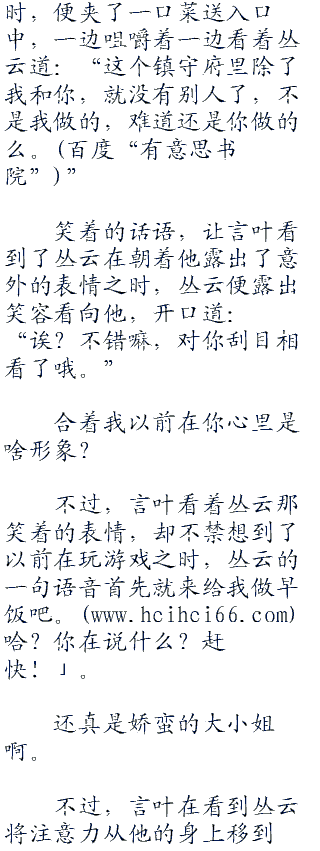 时，便夹了一口菜送入口
中，一边咀嚼着一边看着丛
云道：“这个镇守府里除了
我和你，就没有别人了，不
是我做的，难道还是你做的
么。(百度“有意思书
院”)”
笑着的话语，让言叶看
到了丛云在朝着他露出了意
外的表情之时，丛云便露出
笑容看向他，开口道：
“诶？不错嘛，对你刮目相
看了哦。”
合着我以前在你心里是
啥形象？
不过，言叶看着丛云那
笑着的表情，却不禁想到了
以前在玩游戏之时，丛云的
一句语音首先就来给我做早
饭吧。(www.hcihci66.com)
哈？你在说什么？赶
快！」。
还真是娇蛮的大小姐
啊。
不过，言叶在看到丛云
将注意力从他的身上移到